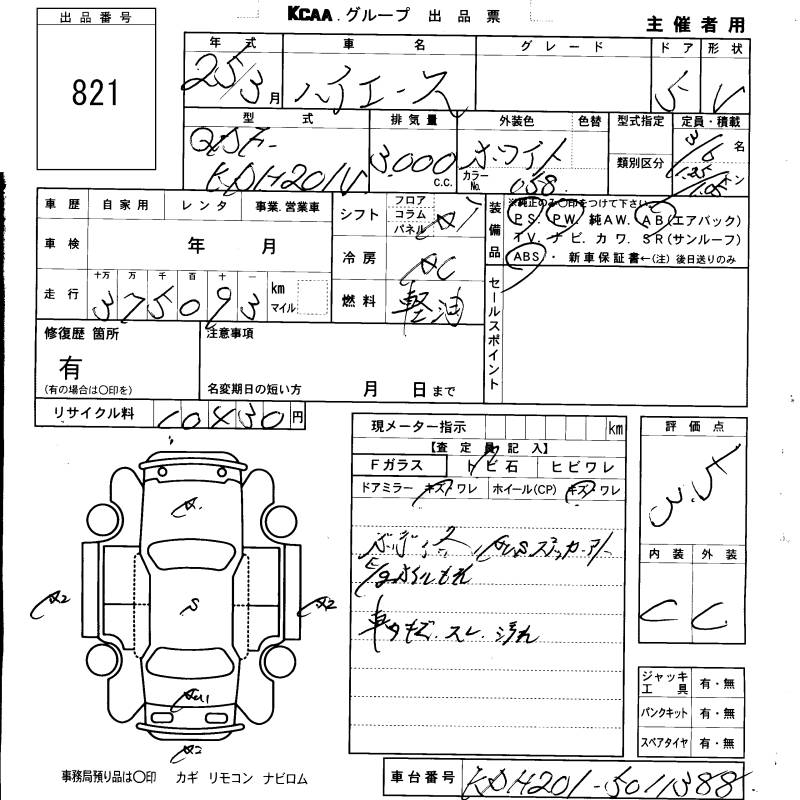 KCAA.グループ 出品票
主催者用
出品番号
821
年式 車名 グレード ドア 形状
25/3月 ハイエース 5 V
型式 排気量 外装色 色替 型式指定 定員・積載
QDF-KDH201V 3.000 C.C. ホワイト カラーNo. 058 類別区分 3/6名 トン
車歴 自家用 レンタ 事業.営業車
シフト フロア コラム パネル AT
装備品 ※純正のみ〇印をつけて下さい。
PS. PW. 純AW. AB(エアバック)
TV. ナビ. カワ. SR(サンルーフ)
ABS・ 新車保証書←(注)後日送りのみ
車検 年 月
冷房 AC
走行 十万 万 千 百 十 一
375093 km マイル
燃料 軽油
セールスポイント
修復歴 箇所
有
(有の場合は〇印を)
注意事項
名変期日の短い方 月 日まで
リサイクル料 10430円
現メーター指示 km
【査定員記入】
Fガラス トビ石 ヒビワレ
ドアミラー キズ・ワレ ホイール(CP) キズ・ワレ
E/gオイルもれ
スレ. 汚れ
評価点
3.5
内装 外装
C C
A2 S A2
A2
ジャッキ工具 有・無
パンクキット 有・無
スペアタイヤ 有・無
事務局預り品は〇印 カギ リモコン ナビロム
車台番号 KDH201-5011388